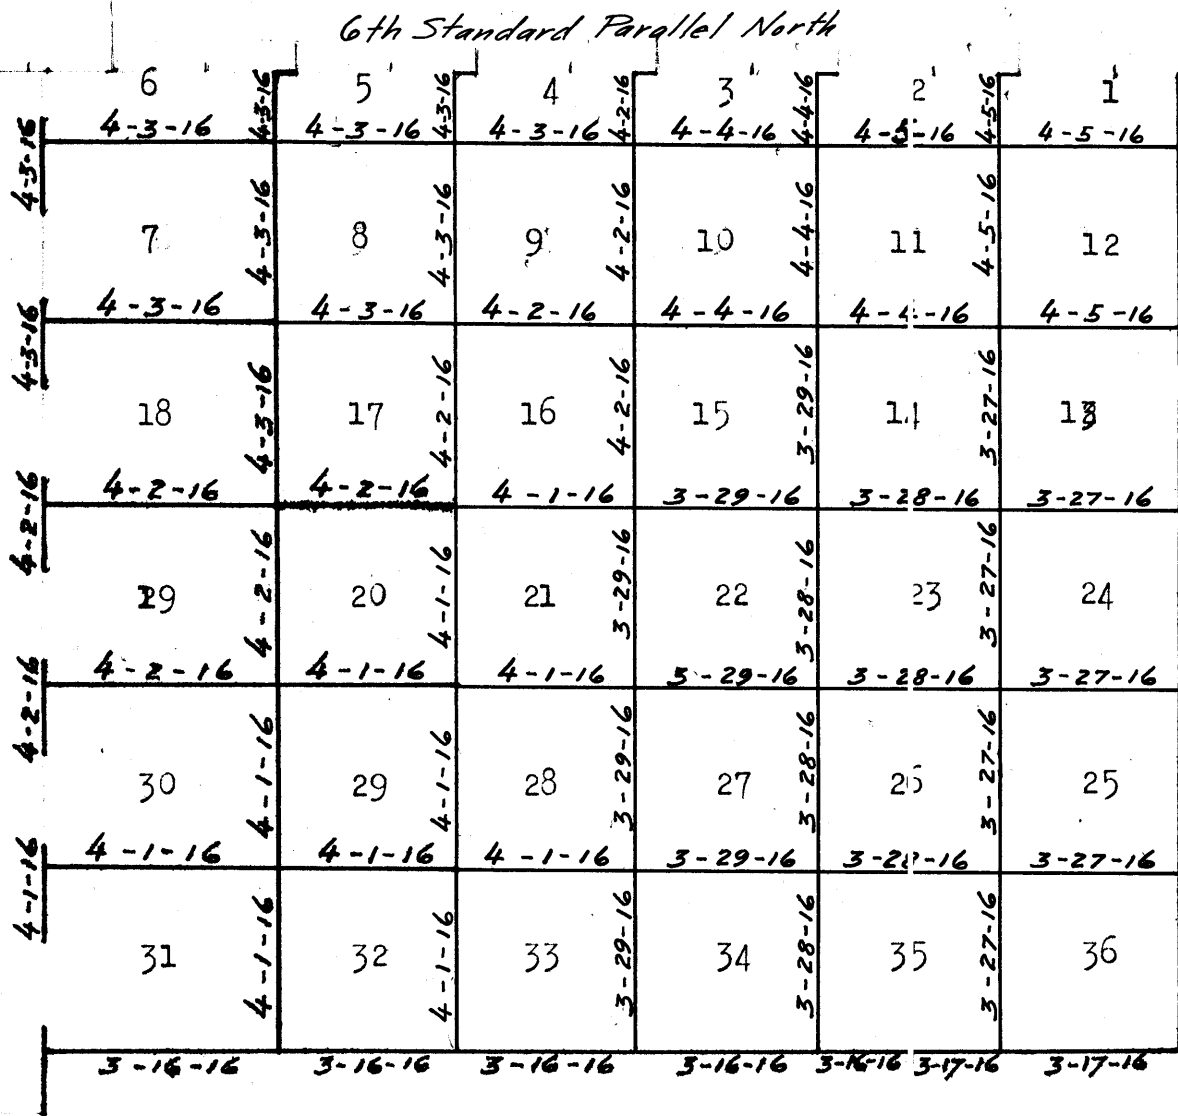 6th Standard Parallel North
6 4-3-16 5 4-3-16 4 4-2-16 3 4-4-16 2 4-5-16 1
4-3-16 4-3-16 4-3-16 4-4-16 4-5-16 4-5-16
4-3-16
7 4-3-16 8 4-3-16 9 4-2-16 10 4-4-16 11 4-5-16 12
4-3-16 4-3-16 4-2-16 4-4-16 4-4-16 4-5-16
4-3-16
18 4-3-16 17 4-2-16 16 4-2-16 15 3-29-16 14 3-27-16 13
4-2-16 4-2-16 4-1-16 3-29-16 3-28-16 3-27-16
4-2-16
19 4-2-16 20 4-1-16 21 3-29-16 22 3-28-16 23 3-27-16 24
4-2-16 4-1-16 4-1-16 3-29-16 3-28-16 3-27-16
4-2-16
30 4-1-16 29 4-1-16 28 3-29-16 27 3-28-16 26 3-27-16 25
4-1-16 4-1-16 4-1-16 3-29-16 3-28-16 3-27-16
4-1-16
31 4-1-16 32 4-1-16 33 3-29-16 34 3-28-16 35 3-27-16 36
3-16-16 3-16-16 3-16-16 3-16-16 3-16-16 3-17-16 3-17-16